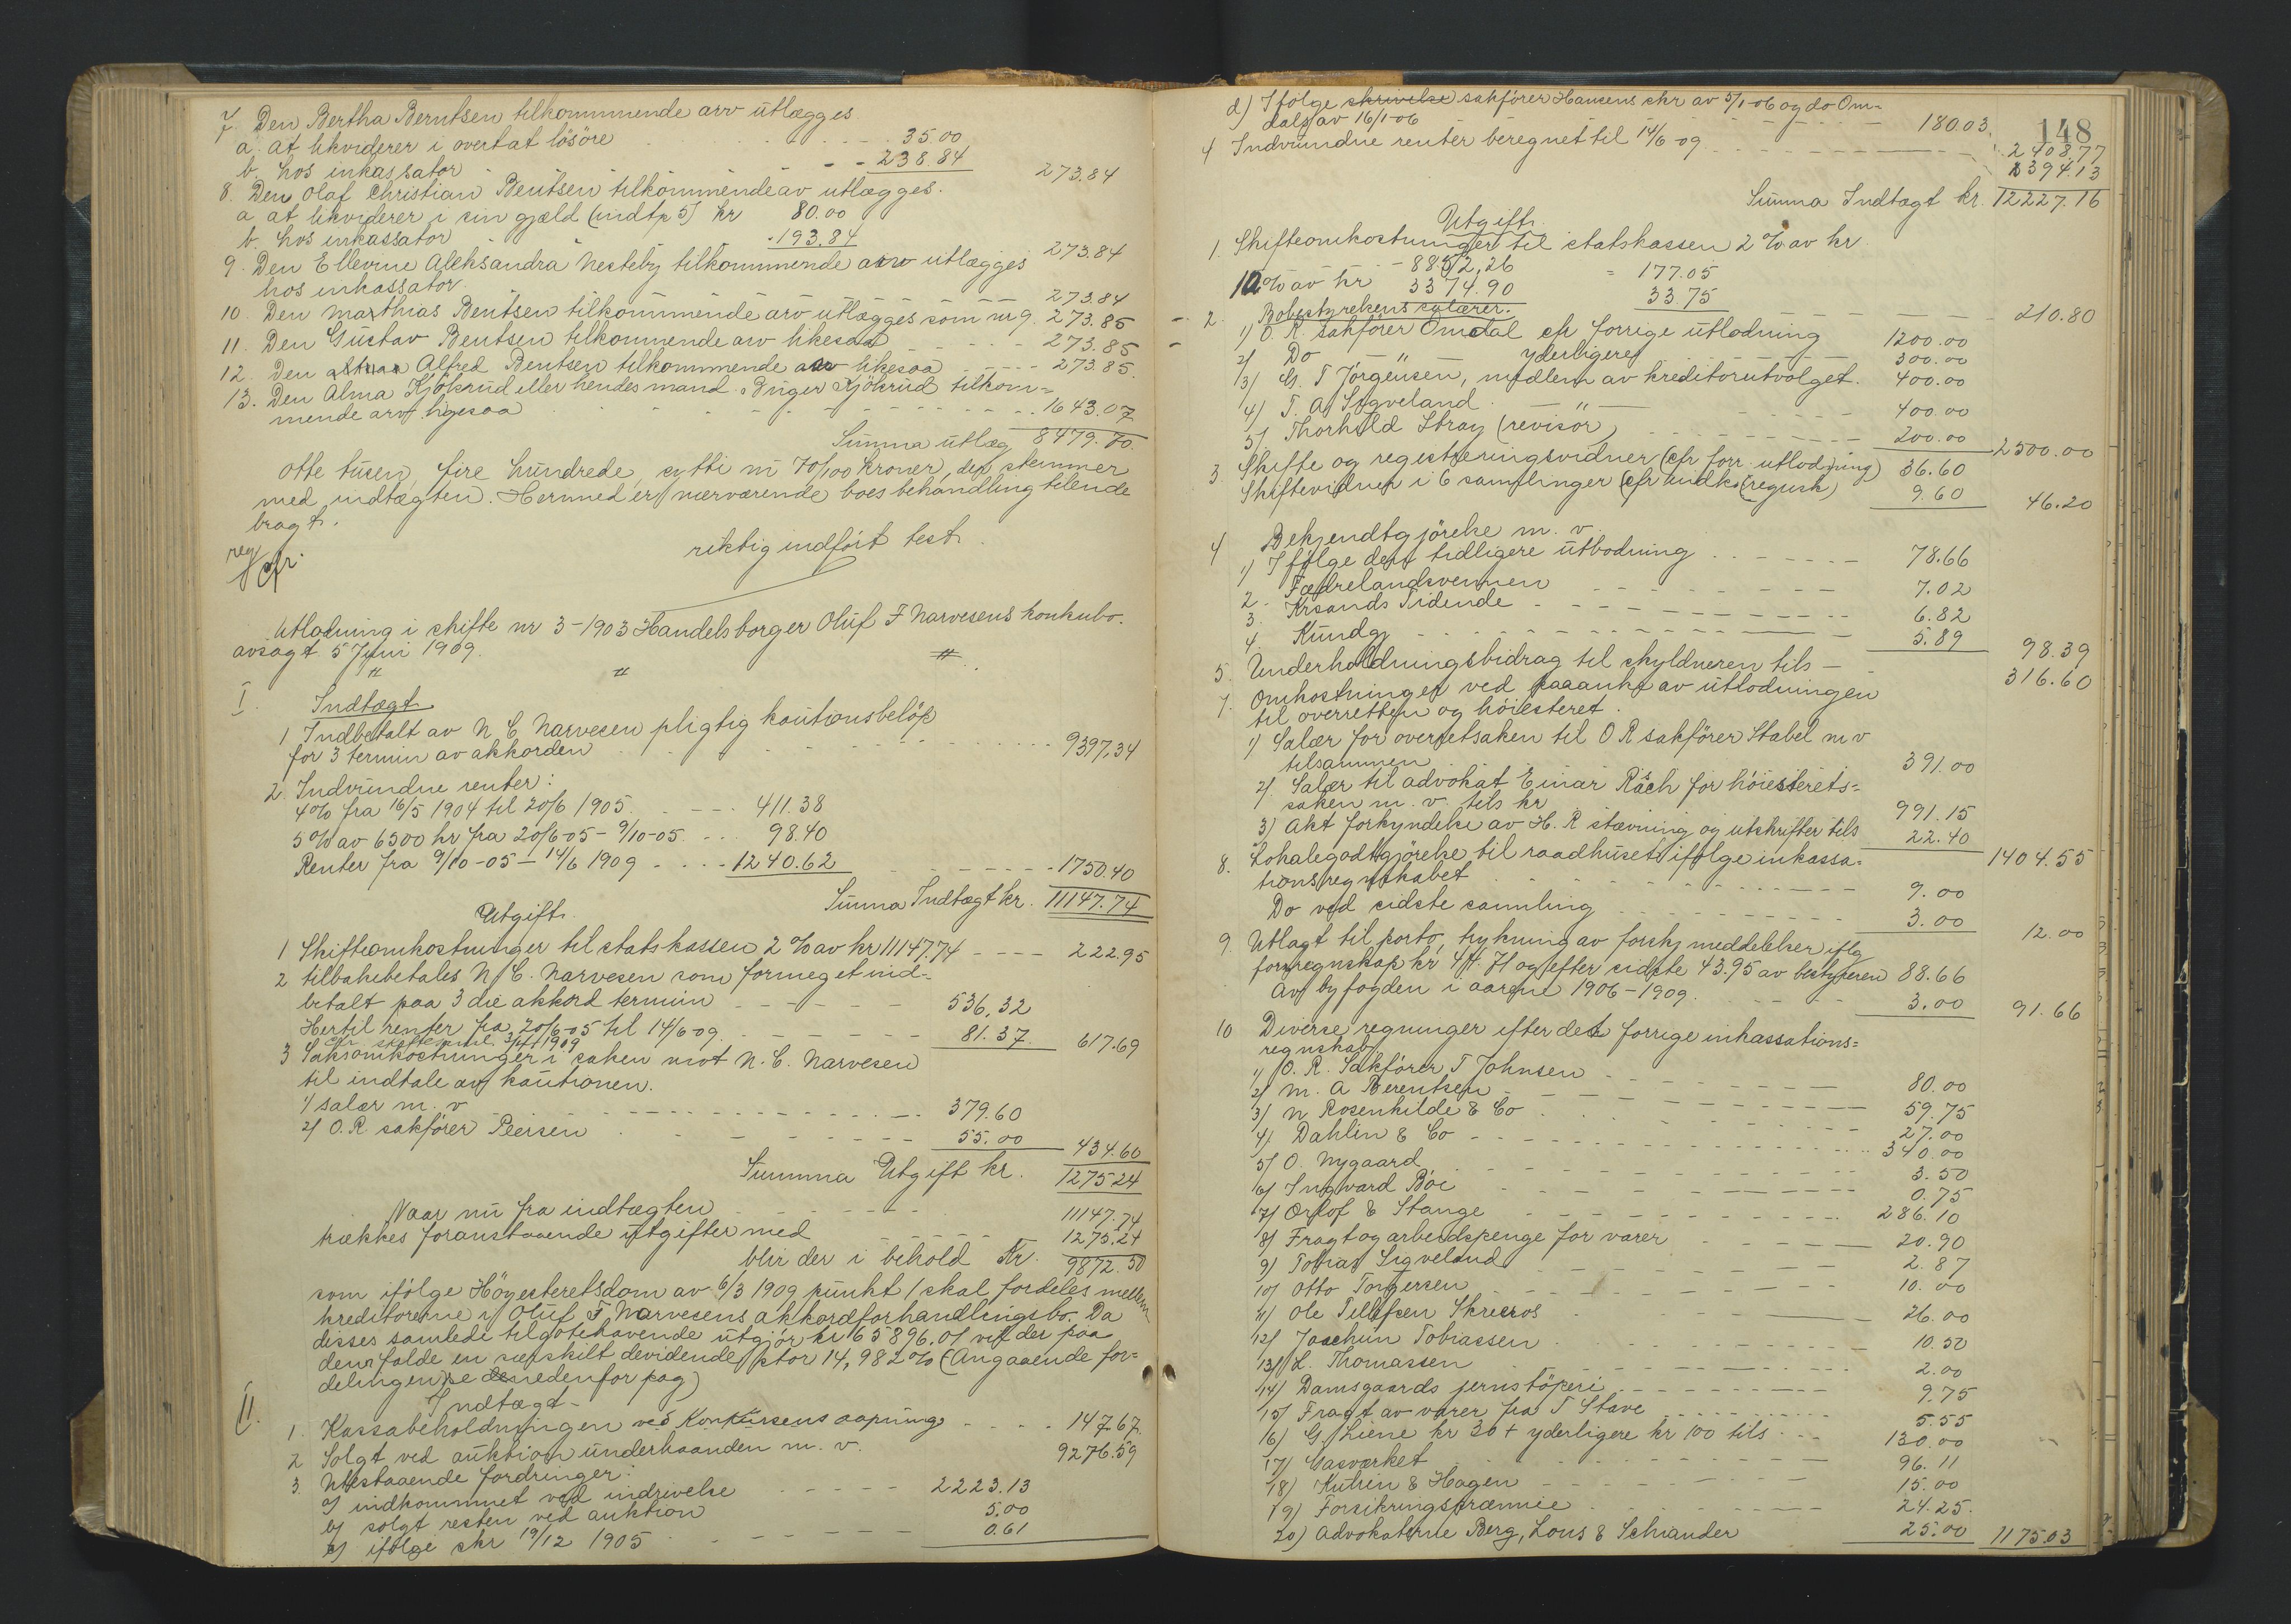 7. Den Bertha Berntsen tilkommende arv utlægges
a. at likviderer i overtat lösöre 35.00
b. hos inkassator 238.84 273.84
8. Den Olaf Christian Bentsen tilkommende av utlægges.
a at likviderer i sin gjæld (indtp 5) kr 80.00
b. hos inkassator 193.84 273.84
9. Den Ellevine Aleksandra Nesteby tilkommende arv utlægges
hos inkassator 273.84
10. Den Marthias Bentsen tilkommende arv utlægges som nr 9. 273.85
11. Den Gustav Bentsen tilkommende arv likesaa 273.85
12. Den Alfred Bentsen tilkommende arv likesaa 273.85.
13. Den Alma Kjökrud eller hendes mand Inger Kjökrud tilkom=
mende arv ligesaa 1643.07
Summa utlæg 8479.70.
otte tusen, fire hundrede, sytti ni 70/100 kroner, der stemmer
med indtægten. Hermed er nærværende boes behandling tilende
bragt.
riktig indfört test.
reg
Utlodning i skifte nr 3-1903 Handelsborger Oluf F Narvesens konkubo.
avsagt 5 Juni 1909.
I. Indtægt
1 Indbetalt av N C Narvesen pligtig kautionsbelöp
for 3 termin av akkorden 9397.34
2. Indvundne renter:
4% fra 16/5 1904 til 20/6 1905 411.38
5% av 6500 kr fra 20/6-05 - 9/10-05 98.40
Renter fra 9/10-05 - 14/6 1909 1240.62 1750.40
Summa Indtægt kr. 11147.74
Utgift.
1 Skifteomkostninger til statskassen 2% av kr 11147.74 222.95
2 tilbakebetales N C. Narvesen som formeget ind=
betalt paa 3die akkord termin 536.32
Hertil renter fra 20/6-05 til 14/6-09 81.37. 617.69
3 Saksomkostninger i saken mot N. C. Narvesen
til indtale av kautionen.
1) salær m. v 379.60
2) O.R. sakförer Peersen 55.00 434.60
Summa Utgift kr. 1275.24
Naar nu fra indtægten 11147.74
trækkes foranstaaende utgifter med 1275.24
blir der i behold Kr. 9872.50
som ifölge Höyesteretsdom av 6/3 1909 punkt 1 skal fordeles mellem
kreditorerne i Oluf F Narvesens akkordforhandlingsbo. Da
disses samlede tilgodehavende utgjör kr 65896.01 vil der paa
dem falde en særskilt devidende stor 14,982% (Angaaende for=
delingen se nedenfor pag)
II. Indtægt
1. Kassabeholdningen ved Konkursens aapning 147.67.
2 Solgt ved auktion underhaanden m. v. 9276.59
3. Utestaaende fordringer:
a) indkommet ved indrivelse 2223.13
b) solgt resten ved auktion 5.00
c) ifölge skr 19/12 1905 0.61
148
d) Ifölge skrivelse sakförer Hansens skr av 5/1-06 og do Om=
dals av 16/1-06 180.03 2408.77
4 Indvundne renter beregnet til 14/6-09 394.13
Summa Indtægt kr. 12227.16
Utgift.
1. Skifteomkostninger til statskassen 2% av kr
8852,26 = 177.05
1% av kr 3374.90 33.75 210.80
2. Bobestyrelsens salærer.
1) O. R. sakförer Omdal cfr forrige utlodning 1200.00
2) Do " yderligere 300.00
3) G. T Jörgensen, medlem av kreditorutvalget. 400.00
4) T. A Sigveland " 400.00
5) Thorhild Stray (revisor) 200.00 2500.00
3. Skifte og registreringsvidner (cfr forr. utlodning) 36.60
Skiftevidner i 6 samlinger 9.60 46.20
4 Bekjendtgjörelse m. v.
1) Ifölge den tidligere utlodning 78.66
2. Fædrelandsvennen 7.02
3. Krsands Tidende 6.82
4. Kundg 5.89 98.39
5. Underholdningsbidrag til skyldneren tils 316.60
7. Omkostninger ved paaanke av utlodningen
til overretten og höiesteret.
1) Salær for overretsaken til O R sakförer Stabel m v
tilsammen 391.00
2) Salær til advokat Einar Rach for höiesterets=
saken m. v. tils kr 991.15
3) Akt forkyndelse av H. R stævning og utskrifter tils 22.40 1404.55
8. Lokalegodtgjörelse til raadhuset ifölge inkassa=
tionsregnskabet 9.00
Do ved sidste samling 3.00 12.00
9. Utlagt til porto, trykning av forskj meddelelser iflg
forr regnskap kr 44.71 og efter sidste 43.95 av bestyreren 88.66
Av byfogden i aarene 1906-1909 3.00 91.66
10 Diverse regninger efter det forrige inkassations=
regnskab
1) O. R. Sakförer T Johnsen 80.00
2) M. A Berentsen 59.75
3) N Rosenkilde & Co 27.00
4) Dahlin & Co 340.00
5) O. Nygaard 3.50
6) Ingvard Böe 0.75
7) Orlof & Stange 286.10
8) Fragt og arbeidspenge for varer 20.90
9) Tobias Sigveland 2.87
10) Otto Torgersen 10.00
11) Ole Tellefsen Skreros 26.00
12) Joachim Tobiassen 10.50
13) L. Thomassen 2.00
14) Damsgaards jernstöperi 9.75
15) Fragt av varer fra T Stave 5.55
16) G. Liene kr 30 + yderligere kr 100 tils 130.00
17) Gasværket 96.11
18) Kuhin & Hagen 15.00
19) Forsikringspræmie 24.25.
20) Advokaterne Berg, Lous & Schiander 25.00 1175.03